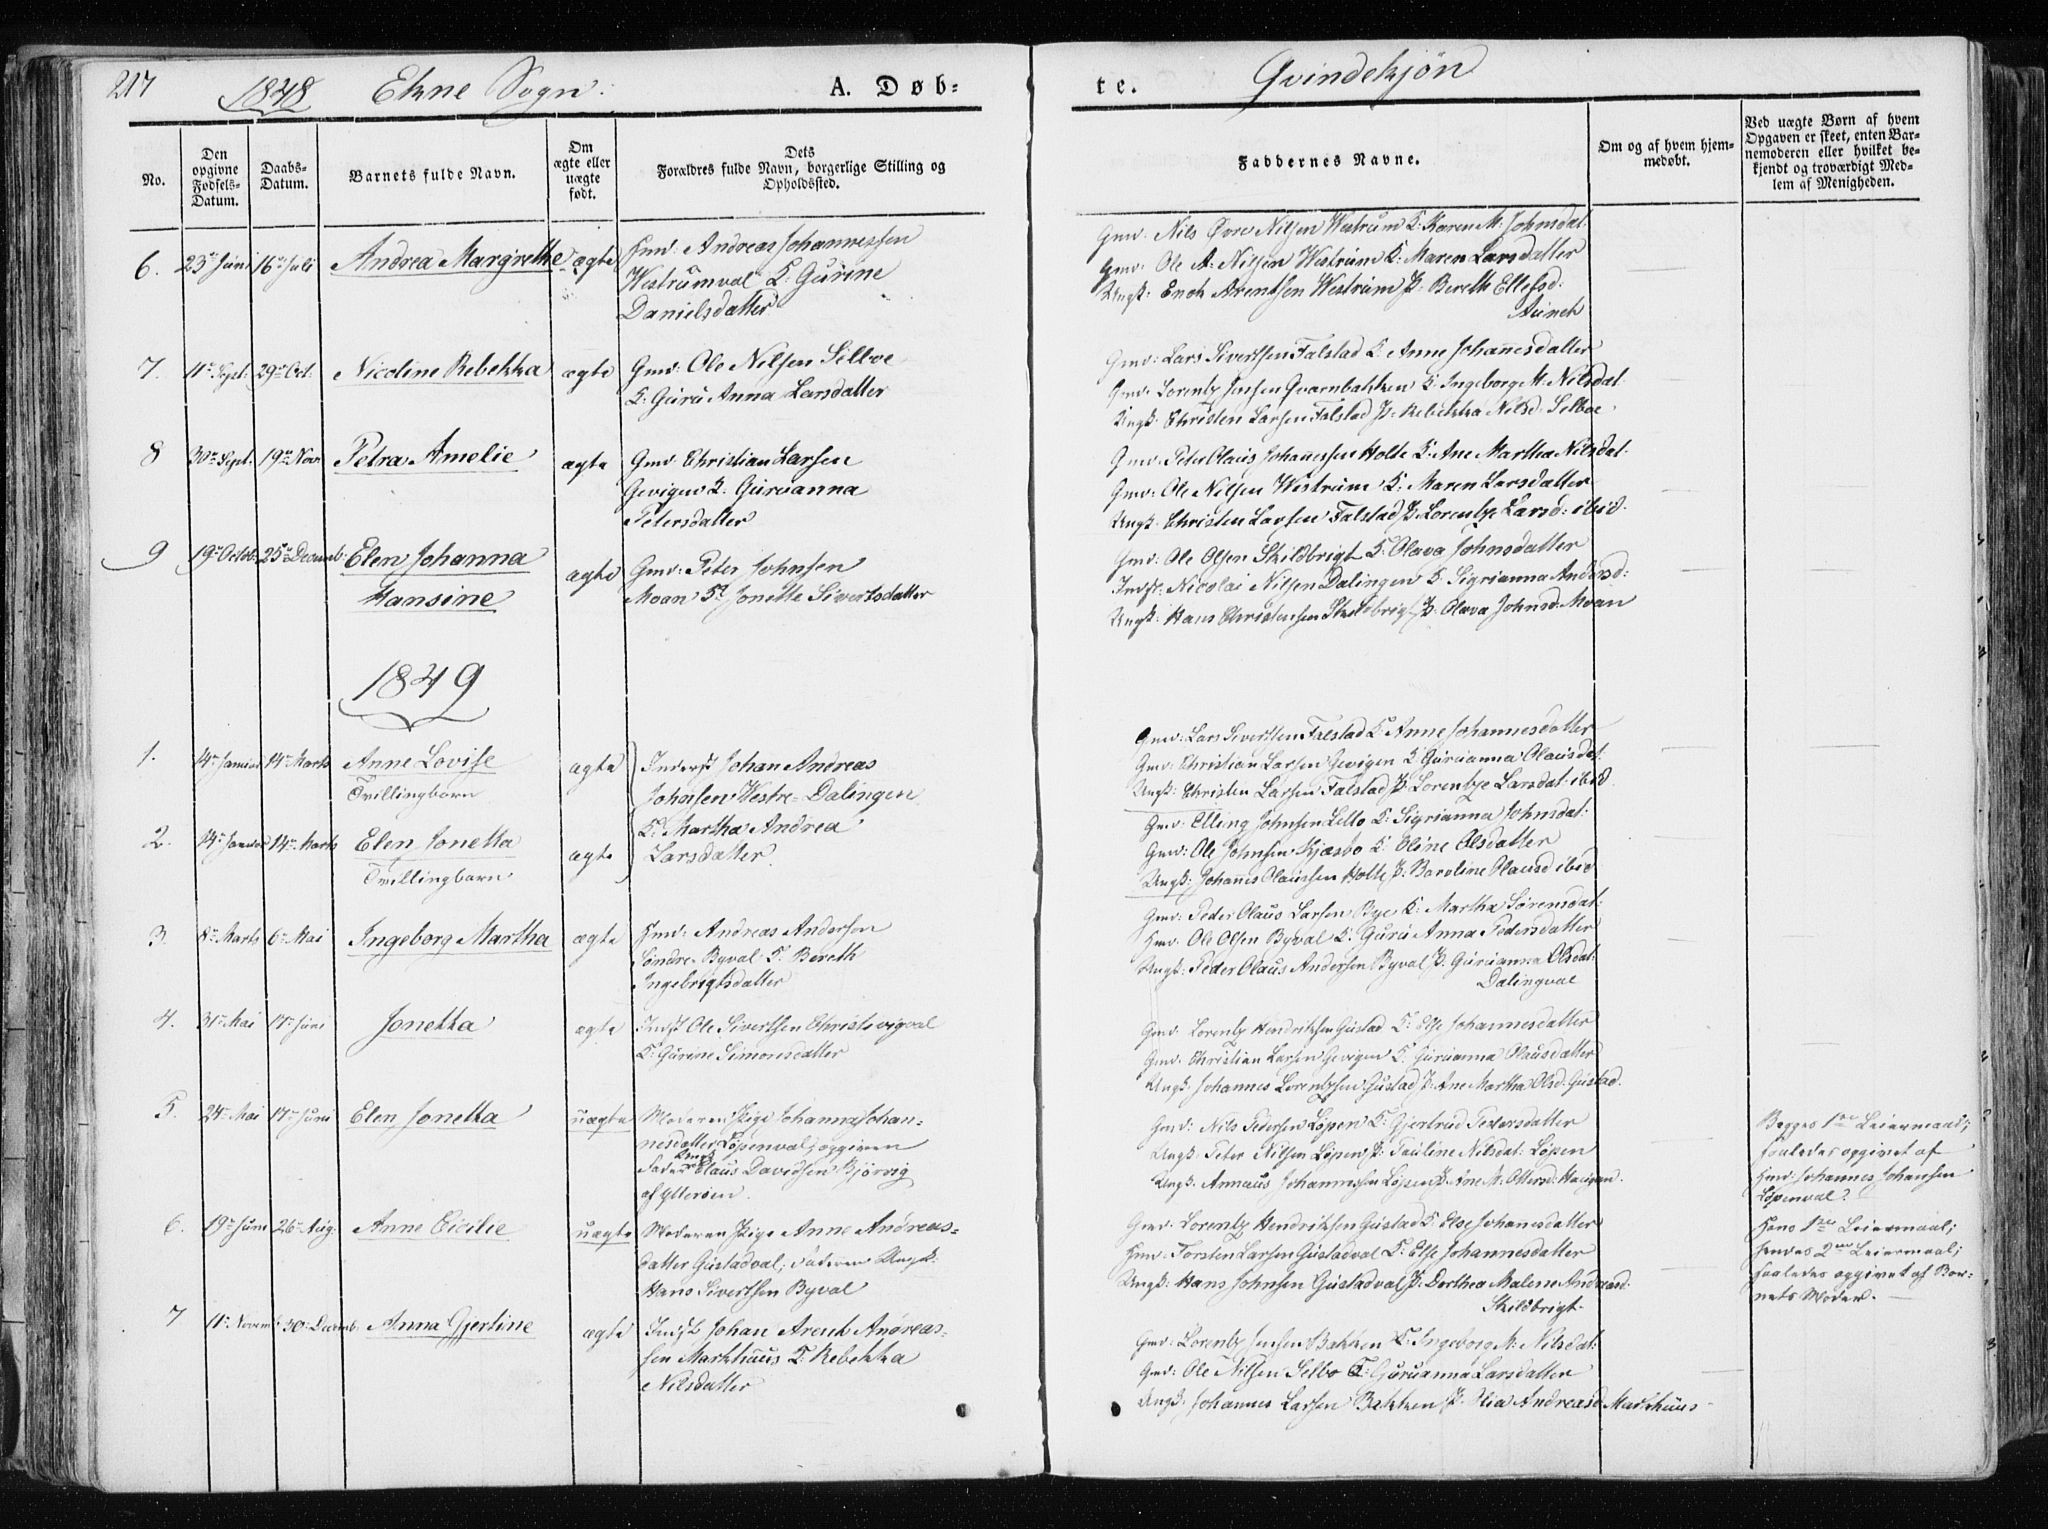 217
1848 Ekne Sogn.
A. Døb-
te.
Qvindekjøn
No.
Den opgivne Fødsels-Datum.
Daabs-Datum.
Barnets fulde Navn.
Om ægte eller uægte født.
Dets Forældres fulde Navn, borgerlige Stilling og Opholdssted.
Faddernes Navne.
Om og af hvem hjem-medøbt.
Ved uægte Børn af hvem Opgaven er skeet, enten Bar-nemoderen eller hvilket be-kjendt og troværdigt Med-lem af Menigheden.
6. 23de Juni 16de Juli Andrea Margrethe ægte Hmd: Andreas Johannessen
Westrumval K: Gurine
Danielsdatter
Gmd: Nils Øvre Nilsen Westrum K: Karen M. Johnsdat:
Gmd: Ole A: Nilsen Westrum K: Maren Larsdatter
Ungk: Enok Arentsen Westrum P: Bereth Ellefsd:
Auneh
7. 11te Sept: 29de Oct: Nicoline Rebekka ægte Gmd: Ole Nilsen Selboe
K: Guru Anna Larsdatter
Gmd: Lars Sivertsen Falstad K: Anne Johannesdatter
Gmd: Lorentz Jensen Qvarnbakken K: Ingeborg M: Nilsdat:
Ungk: Christen Larsen Falstad P: Rebekka Nilsd: Selboe
8 30te Sept: 19de Novr Petra Amelie ægte Gmd: Christian Larsen
Gevigen K: Guruanna
Petersdatter
Gmd: Peter Olaus Johannessen Holte K: Ane Martha Nilsdat:
Gmd: Ole Nilsen Westrum K: Maren Larsdatter
Ungk: Christen Larsen Falstad P: Lorentze Larsd: ibid.
9 19de Octob: 25de Decemb: Elen Johanna
Hansine ægte Gmd: Peter Johnsen
Moan K: Jonette Sivertsdatter
Gmd: Ole Olsen Skildbrigt K: Olava Johnsdatter
Indst: Nicolai Nilsen Dalingen K: Sigrianna Andersd:
Ungk: Hans Christensen Skildbrigt P: Olava Johnsd: Moan
1849
1. 14de Januar 14de Marts Anne Lovise
Tvillingbarn ægte Inderst Johan Andreas
Johnsen Westre-Dalingen
Gmd: Lars Sivertsen Falstad K: Anne Johannesdatter
Gmd: Christian Larsen Gevigen K: Guruanna Olausdat:
Ungk: Christen Larsen Falstad P: Lorentze Larsdat: ibid.
2. 14de Januar 14de Marts Elen Jonetta
Tvillingbarn ægte K: Martha Andrea
Larsdatter
Gmd: Elling Johnsen Lello K: Sigrianna Johnsdat:
Gmd: Ole Johnsen Kjæsbo K: Eline Olsdatter
Ungk: Johannes Olaussen Holte P: Baroline Olausd ibid
3. 8de Marts 6te Mai Ingeborg Martha ægte Hmd: Andreas Andersen
Søndre-Byval K: Bereth
Ingebrigtsdatter
Gmd: Peder Olaus Larsen Bye K: Martha Sørensdat:
Hmd: Ole Olsen Byval K: Guru Anna Pedersdatter
Ungk: Peder Olaus Andersen Byval P: Guruanna Olsdat:
Dalingval
4. 31te Mai 17de Juni Jonetta ægte Indst Ole Sivertsen Christsvigval
K: Gurine Simonsdatter
Gmd: Lorentz Hendriksen Gustad K: Else Johannesdatter
Gmd: Christian Larsen Gevigen K: Guruanna Olausdatter
Ungk: Johannes Lorentzsen Gustad P: Ane Martha Olsd: Gustad.
5. 24de Mai 17de Juni Elen Jonetta uægte Moderen Pige Johanna Johan-
nesdatter Løpenval; opgiven
Fader Ungk Claus Davidsen Bjørvig
af Ytterøen.
Gmd: Nils Pedersen Løpen K: Gjertrud Pedersdatter
Ungk: Peter Nilsen Løpen P: Pauline Nilsdat: Løpen
Ungk: Annæus Johannesen Løpen P: Ane M: Ottersd: Haugan.
Begges 1ste Leiermaal;
saaledes opgivet af
Hmd: Johannes Johansen
Løpenval.
6. 19de Juni 26de Aug: Anne Cicilie uægte Moderen Pige Anne Andreas-
datter Gustadval; Faderen Ungk:
Hans Sivertsen Byval
Gmd: Lorentz Hendriksen Gustad K: Else Johannesdatter
Hmd: Torsten Larsen Gustadval K: Else Johannesdatter
Ungk: Hans Johnsen Gustadval P: Dorthea Malene Andreasd:
Skildbrigt.
Hans 1ste Leiermaal;
hendes 2det Leiermaal;
saaledes opgivet af Bar-
nets Moder.
7 11te Novemb: 30te Decemb: Anna Gjertine ægte Indst Johan Arent Andreas-
sen Markhuus K: Rebekka
Nilsdatter
Gmd: Lorentz Jensen Bakken K: Ingeborg M: Nilsdat:
Gmd: Ole Nilsen Selbo K: Guruanna Larsdatter
Ungk: Johannes Larsen Bakken P: Olia Andreasd Markhuus